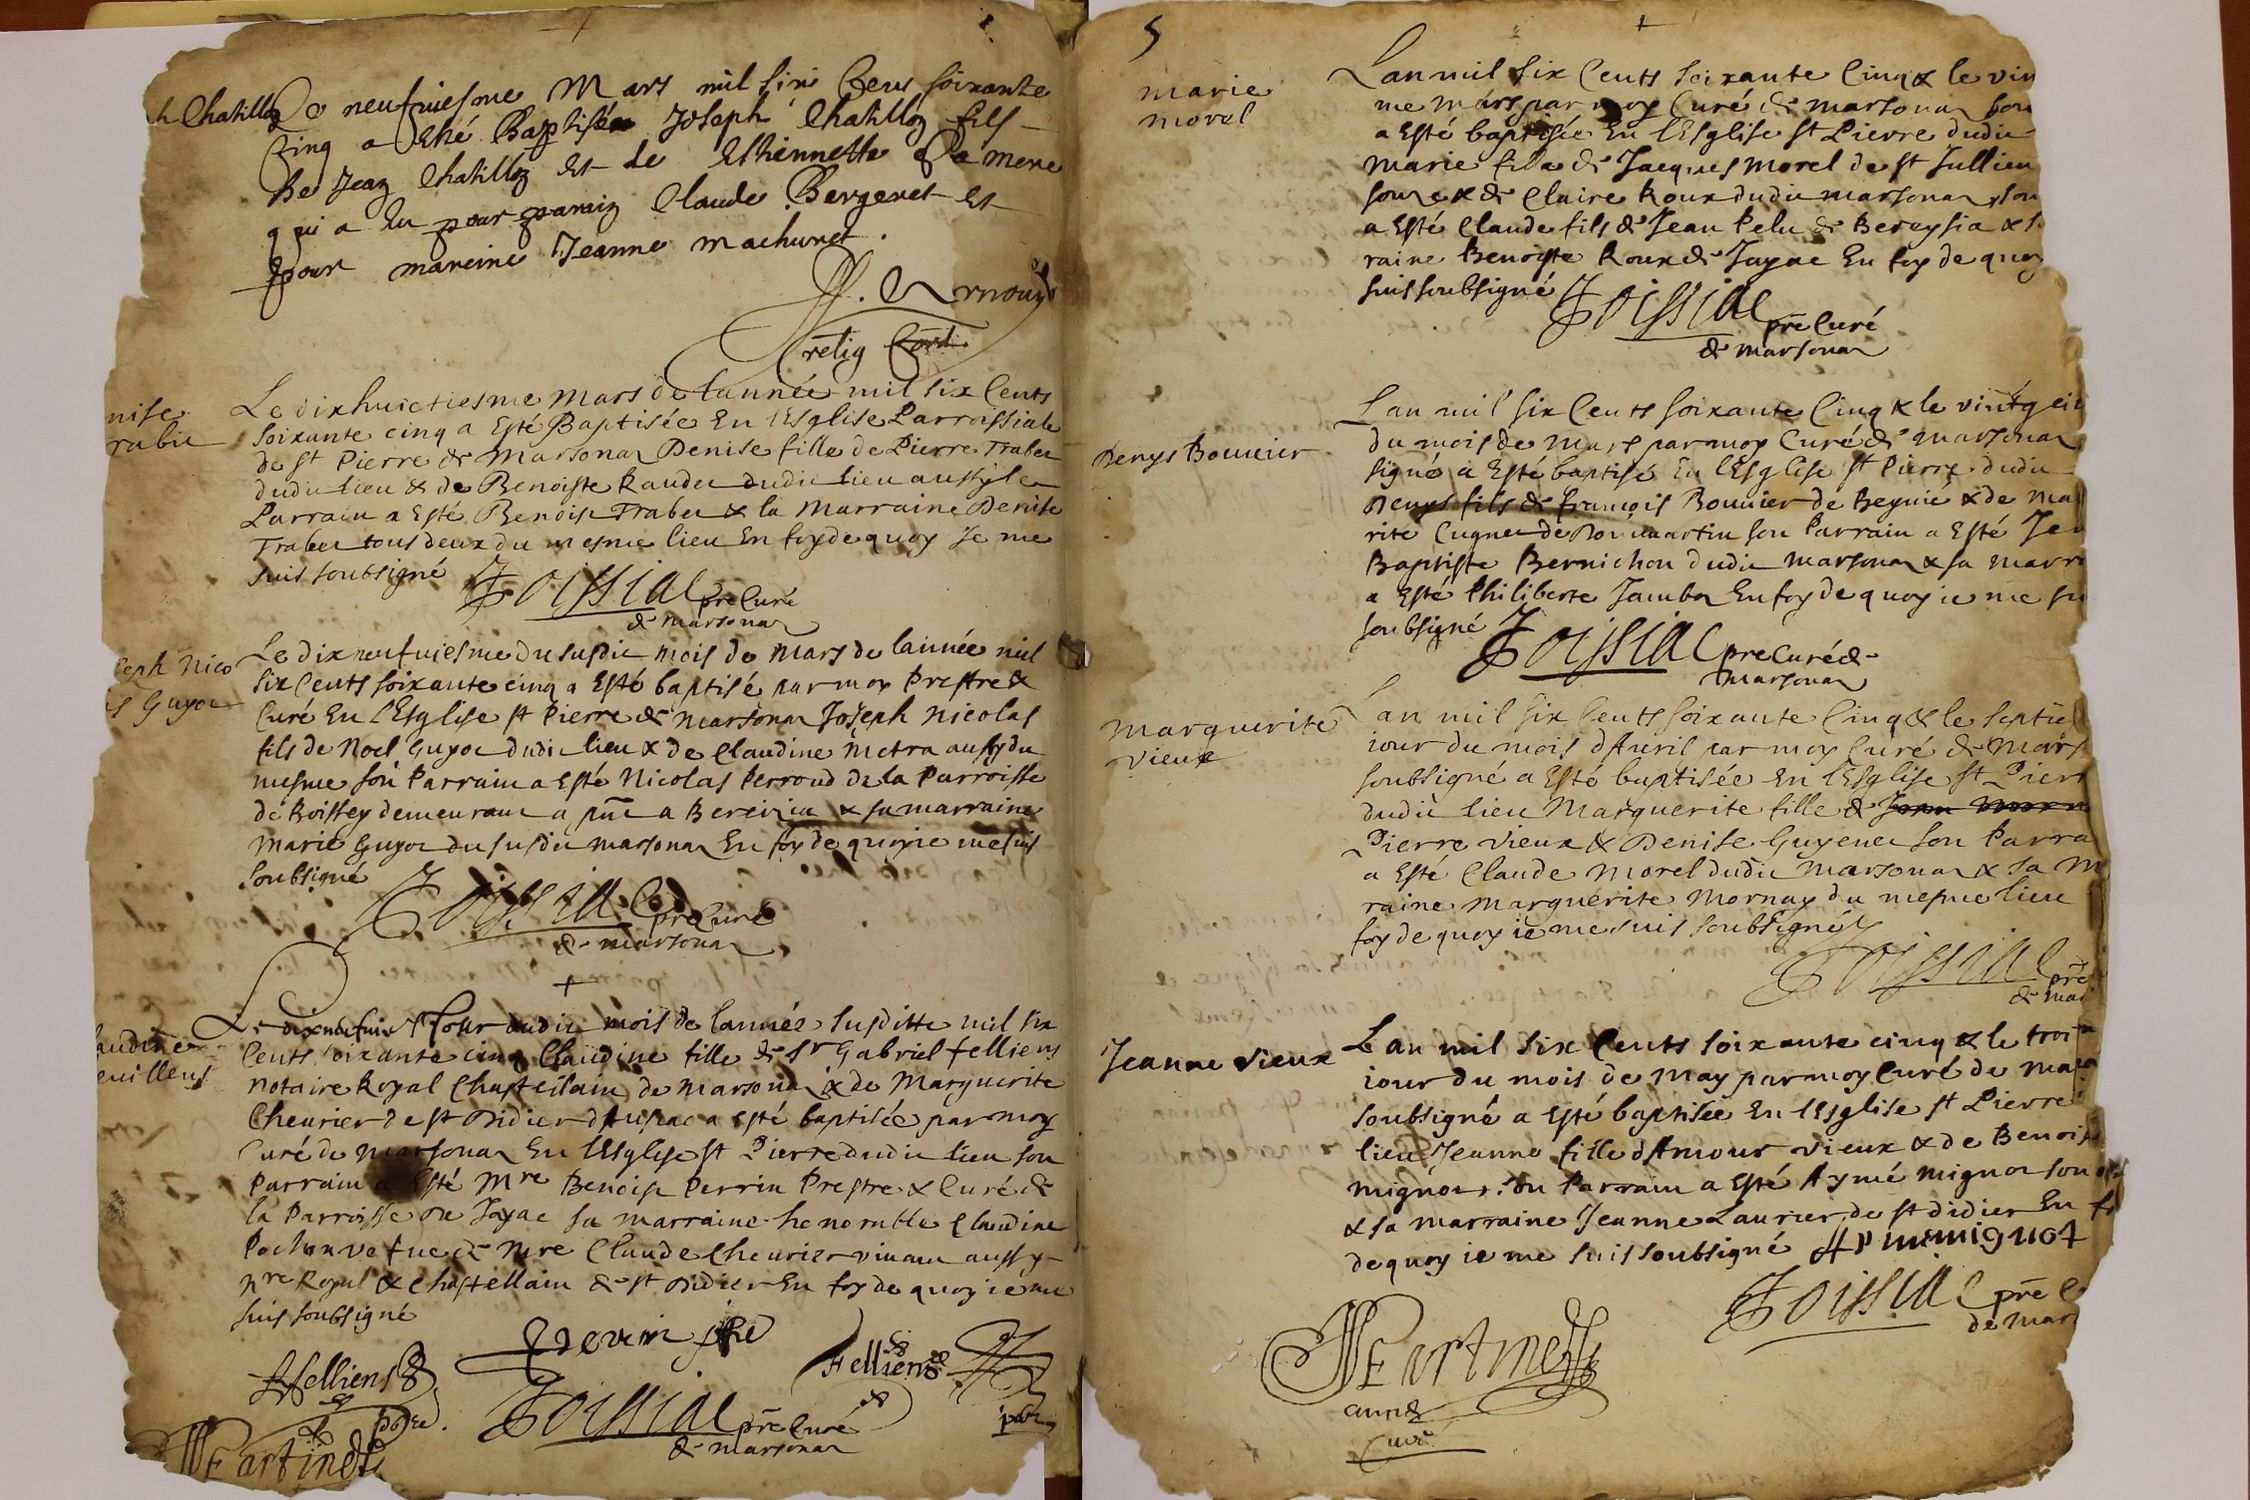 h Chatillon
Le neufuiesme Mars mil six Cens soixante
Cinq a esté Baptisée Joseph Chatillon fils
De Jean Chatillon Et de Esthiennette sa mere
qui a Eu pour parrain Claude Bergeret Et
pour mareine Jeanne machuret.
Arnoux
relig Cord.
nise
rabu
Le dixhuictiesme Mars de lannée mil six Cents
soixante cinq a Esté Baptisée En lEsglise Parroissiale
de st Pierre de Marsona Denise fille de Pierre Trabu
dudit lieu & de Benoiste Raudu dudit lieu aussy le
Parrain a Esté Benoist Trabu & la Marraine Denise
Trabu tous deux du mesme lieu En foy de quoy Je me
suis soubsigné
Joissial pre Curé
de marsona
seph Nico
as Guyot
Le dixneufuiesme du susdit mois de Mars de lannée mil
six Cents soixante cinq a Esté baptisé par moy Prestre &
Curé En lEsglise st Pierre de marsona Joseph Nicolas
fils de Noel Guyot dudit lieu & de Claudine Metra aussy du
mesme son Parrain a Esté Nicolas Perroud de la Parroisse
de Boissey demeurant a pnt a Bereizia & sa marraine
Marie Guyot du susdit marsona En foy de quoy ie me suis
soubsigné
Joissial pre Curé
de marsona
audine
euillens
Le dixneufuie Jour dudit mois de lannée susditte mil six
Cents soixante cinq Claudine fille de Sr Gabriel felliens
notaire Royal Chastellain de Marsona & de Marguerite
Cheurier de st Didier dAussiac a esté baptisée par moy
Curé de Marsona En lEsglise st Pierre dudit lieu son
Parrain a Esté Mre Benoist Perrin Prestre & Curé de
la Parroisse de Jayac sa marraine honorable Claudine
Pochon vefue de Mre Claude Cheurier viuant aussy
nre Royal & Chastellain de st Didier En foy de quoy ie me
suis soubsigné
felliens
Felliens
Joissial pre Curé
de marsona
5
marie
morel
Lan mil six Cents soixante Cinq & le vin
me Mars par moy Curé de marsona sou
a Esté baptisée En lEsglise st Pierre dudit
Marie fille de Jacques Morel de st Jullien
sour & de Claire Roux dudit marsona son
a Esté Claude fils de Jean Pelu de Bereysia & s
raine Benoiste Roux de Jayac En foy de quoy
suis soubsigné
Joissial pre Curé
de marsona
Denys Bouuier
Lan mil six Cents soixante Cinq & le vintgci
du mois de Mars par moy Curé de marsona
signé a Esté baptisé En lEsglise st Pierre dudit
Denys fils de françois Bouuier de Beynié & de Ma
rite Cugnet de Roumartin son Parrain a Esté Jea
Baptiste Bernichon dudit marsona & sa marr
a Esté Philiberte Jambon En foy de quoy ie me su
soubsigné
Joissial pre Curé de
marsona
Marguerite
vieux
Lan mil six Cents soixante Cinq & le septie
iour du mois dAuril par moy Curé de Mars
soubsigné a Esté baptisée En lEsglise st Pierr
dudit lieu Marguerite fille de
Pierre Vieux & Denise Guyenet son Parra
a Esté Claude Morel dudit Marsona & sa M
raine Marguerite Mornay du mesme lieu
foy de quoy ie me suis soubsigné
Joissial pre
de mar
Jeanne Vieux
Lan mil six Cents soixante cinq & le troi
iour du mois de May par moy Curé de Ma
soubsigné a esté baptisée En lEsglise st Pierre
lieu Jeanne fille dAmour vieux & de Benois
mignot son Parrain a Esté Aymé mignot son
& sa marraine Jeanne Laurier de st didier En fo
de quoy ie me suis soubsigné Aymé mignot
Joissial pre C
de Mar